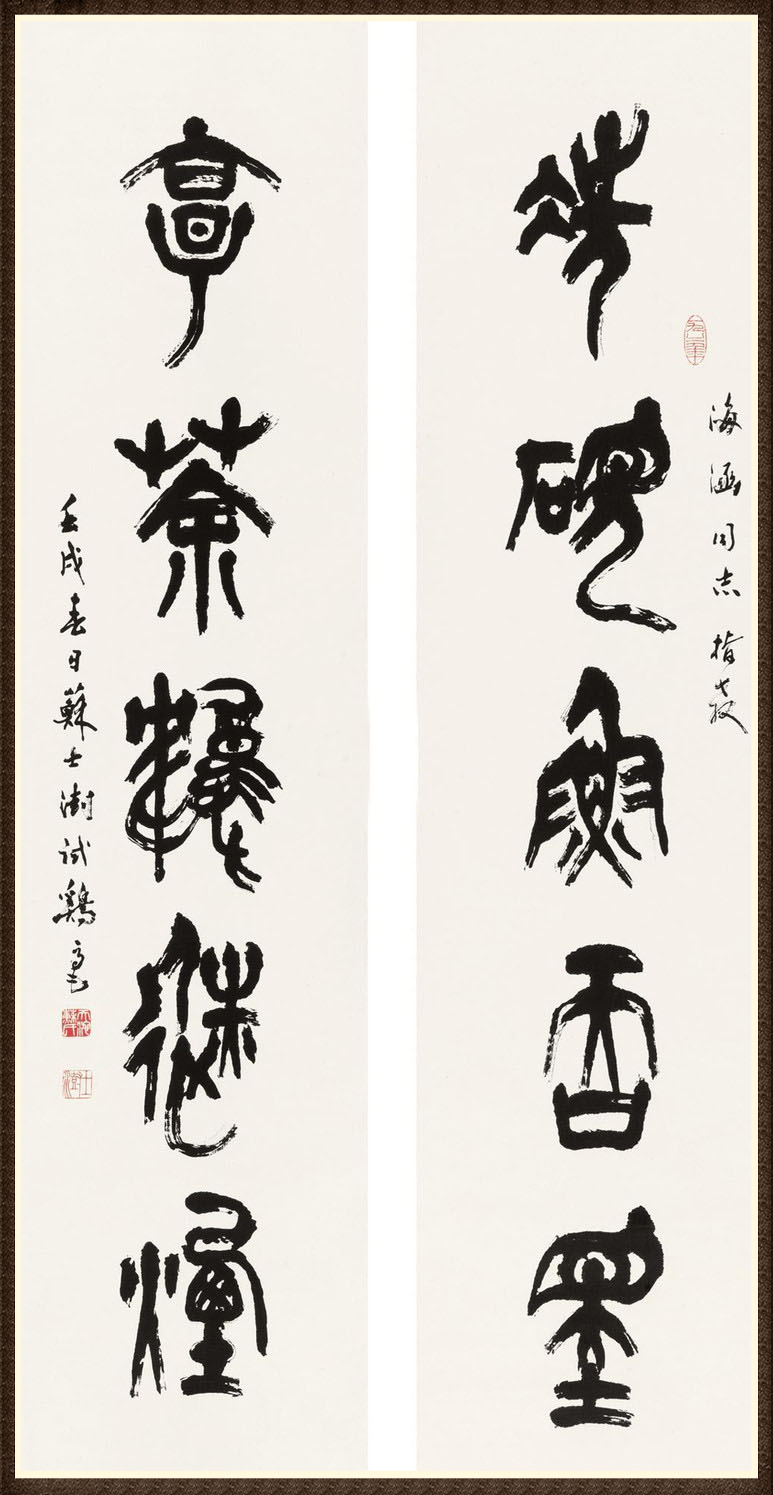 海涵同志指教
洗硯魚吞墨
烹茶鶴避煙
壬戌春日蘇士澍試鷄毫